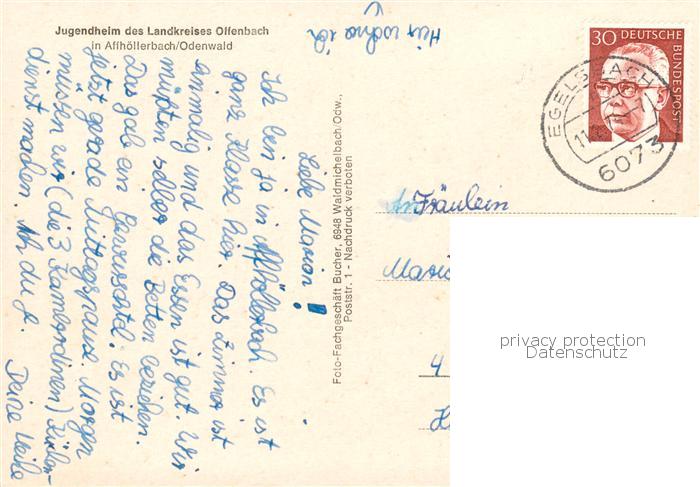 Jugendheim des Landkreises Offenbach
in Affhöllerbach/Odenwald
Hier wohne ich
30 DEUTSCHE
BUNDESPOST
EGELSBACH
6073
Liebe Marion!
Ich bin ja in Affhöllerbach. Es ist
ganz Klasse hier. Das Zimmer ist
und das Essen ist gut. Wir
mußten selber die Betten beziehen.
Das gab ein Es ist
jetzt gerade Mittagspause. Morgen
müssen wir (die 3 Küchen-
dienst machen. Deine Heike
Foto-Fachgeschäft Bucher, 6948 Waldmichelbach/Odw.,
Poststr. 1 Nachdruck verboten
An Fräulein
4
privacy protection
Datenschutz